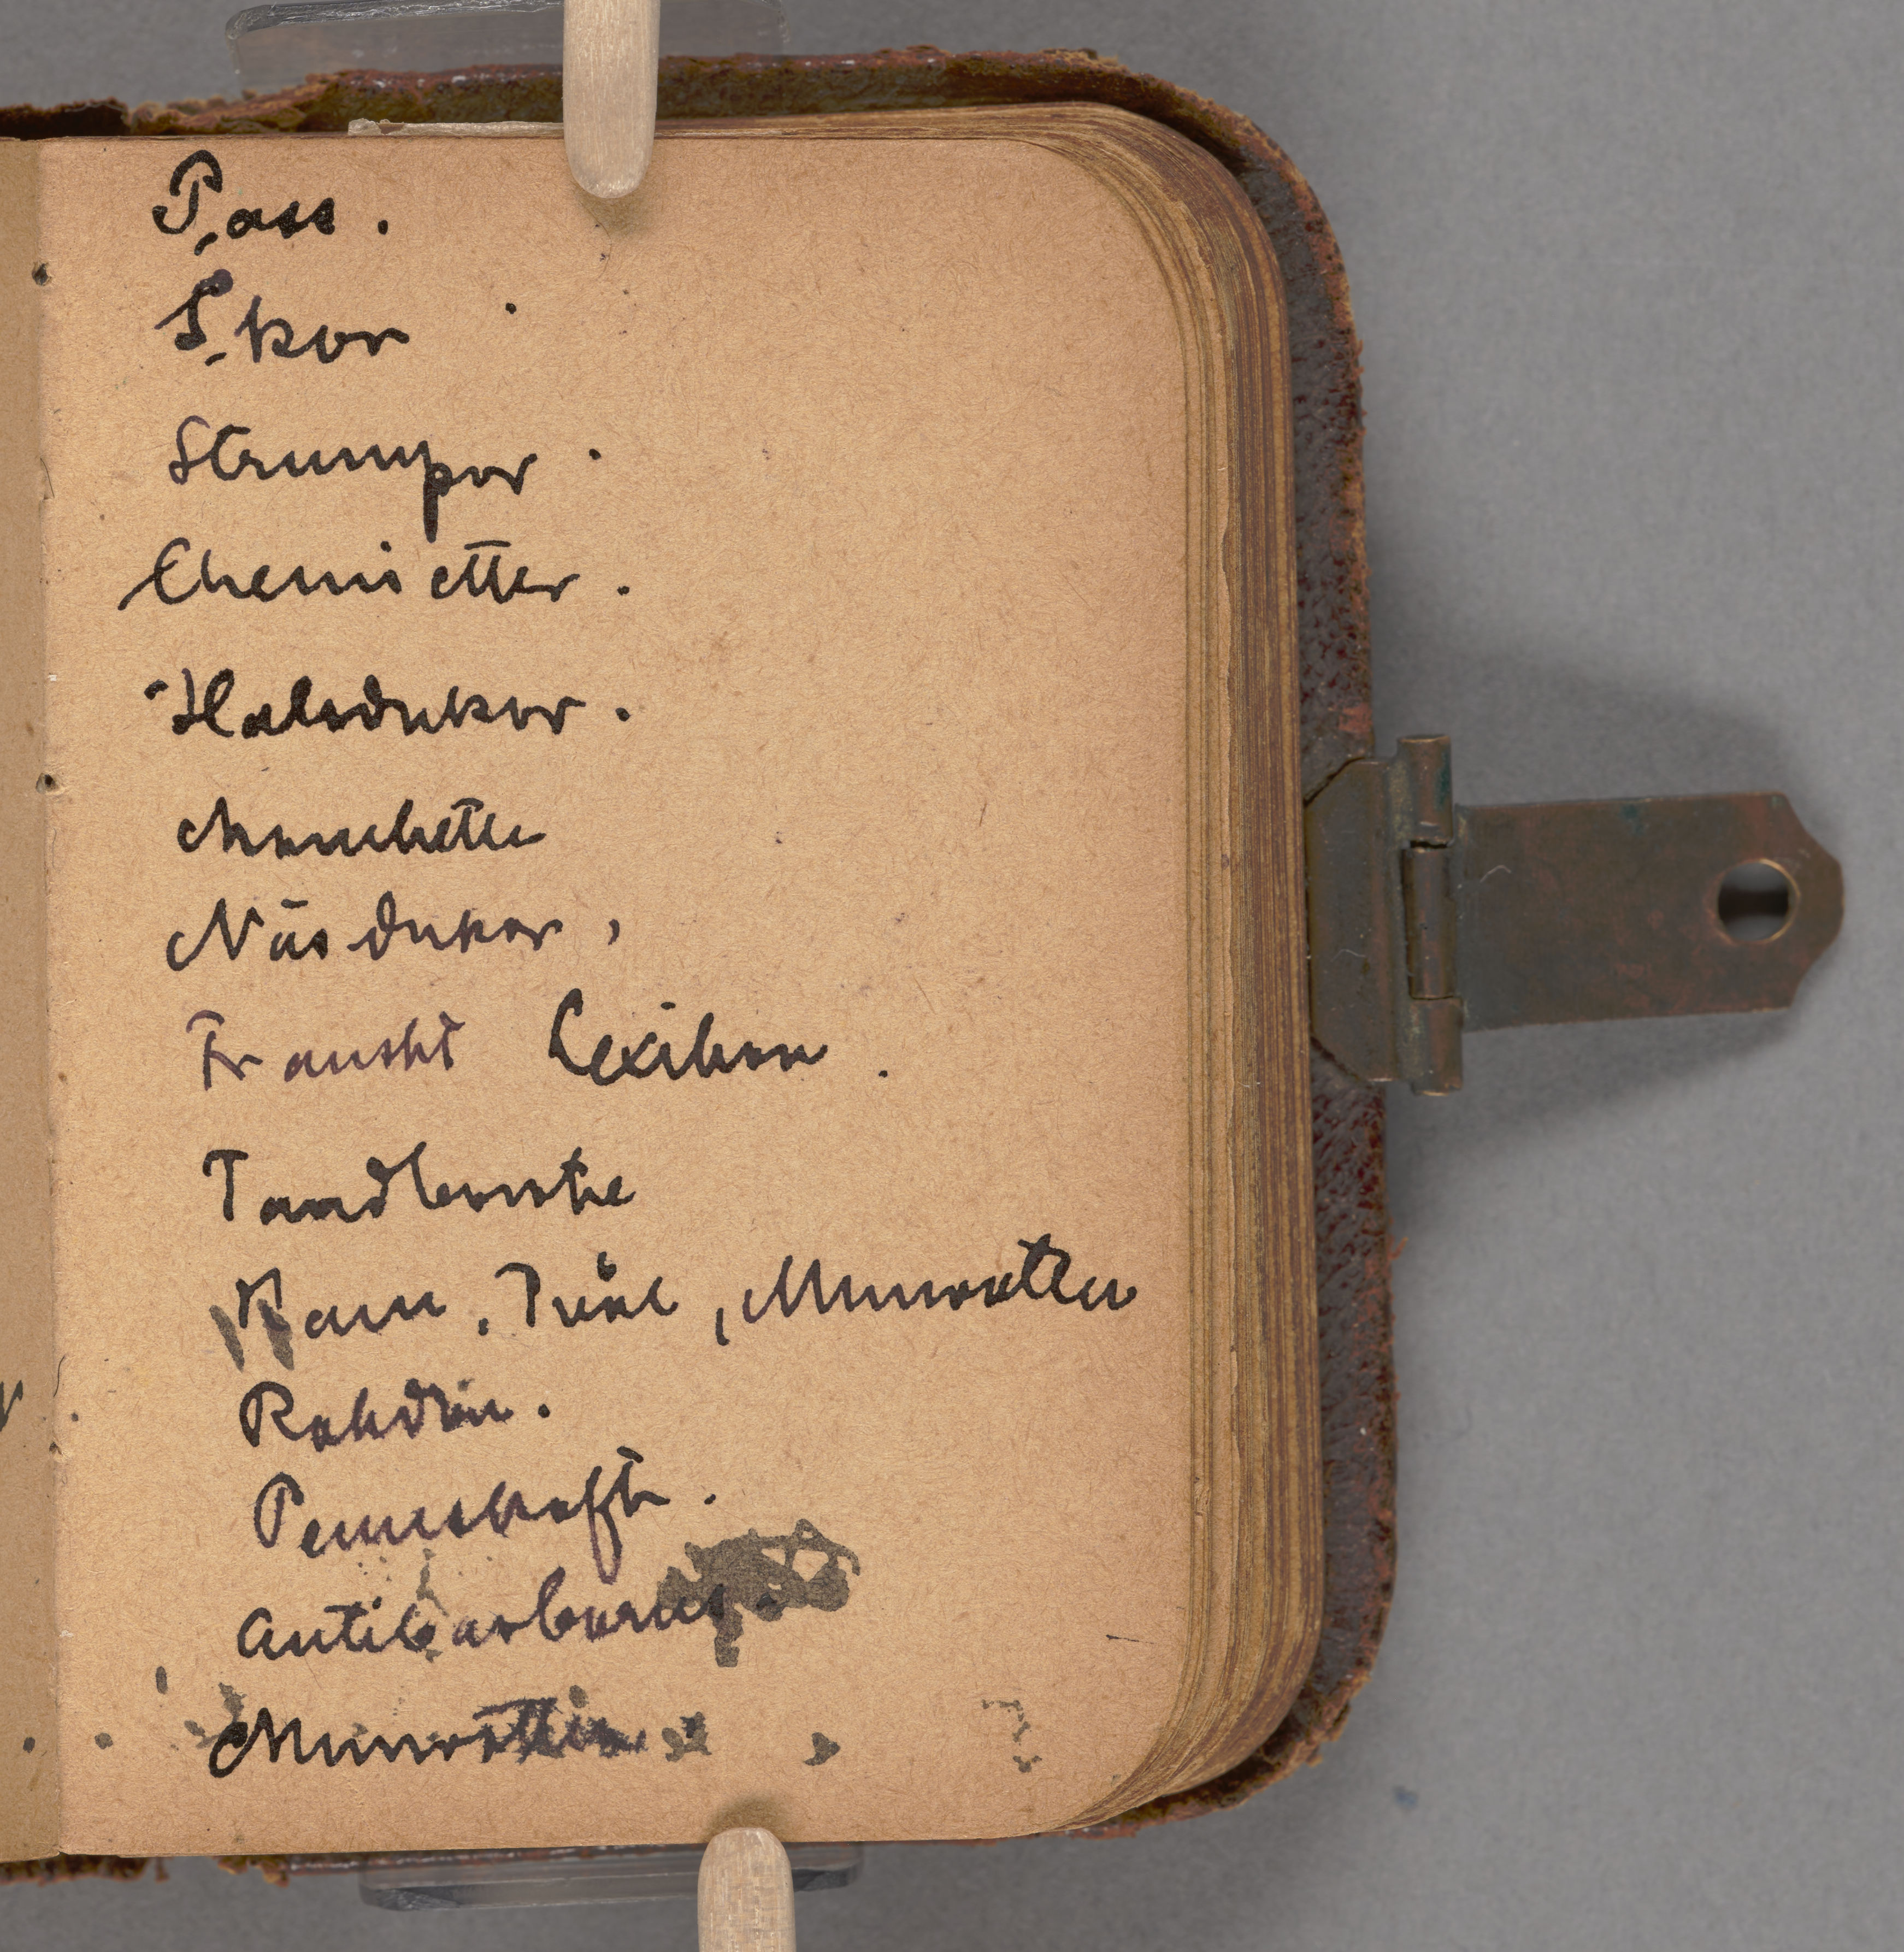 Pass.
Skor
Strumpor.
Chemisetter.
Halsdukor.
Manchetter
Näsdukor,
Franskt Lexikon.
Tandborste
Kam, Tvål, Munvatten
Rakdon.
Pennskaft.
Antibarbarus.
Munvatten